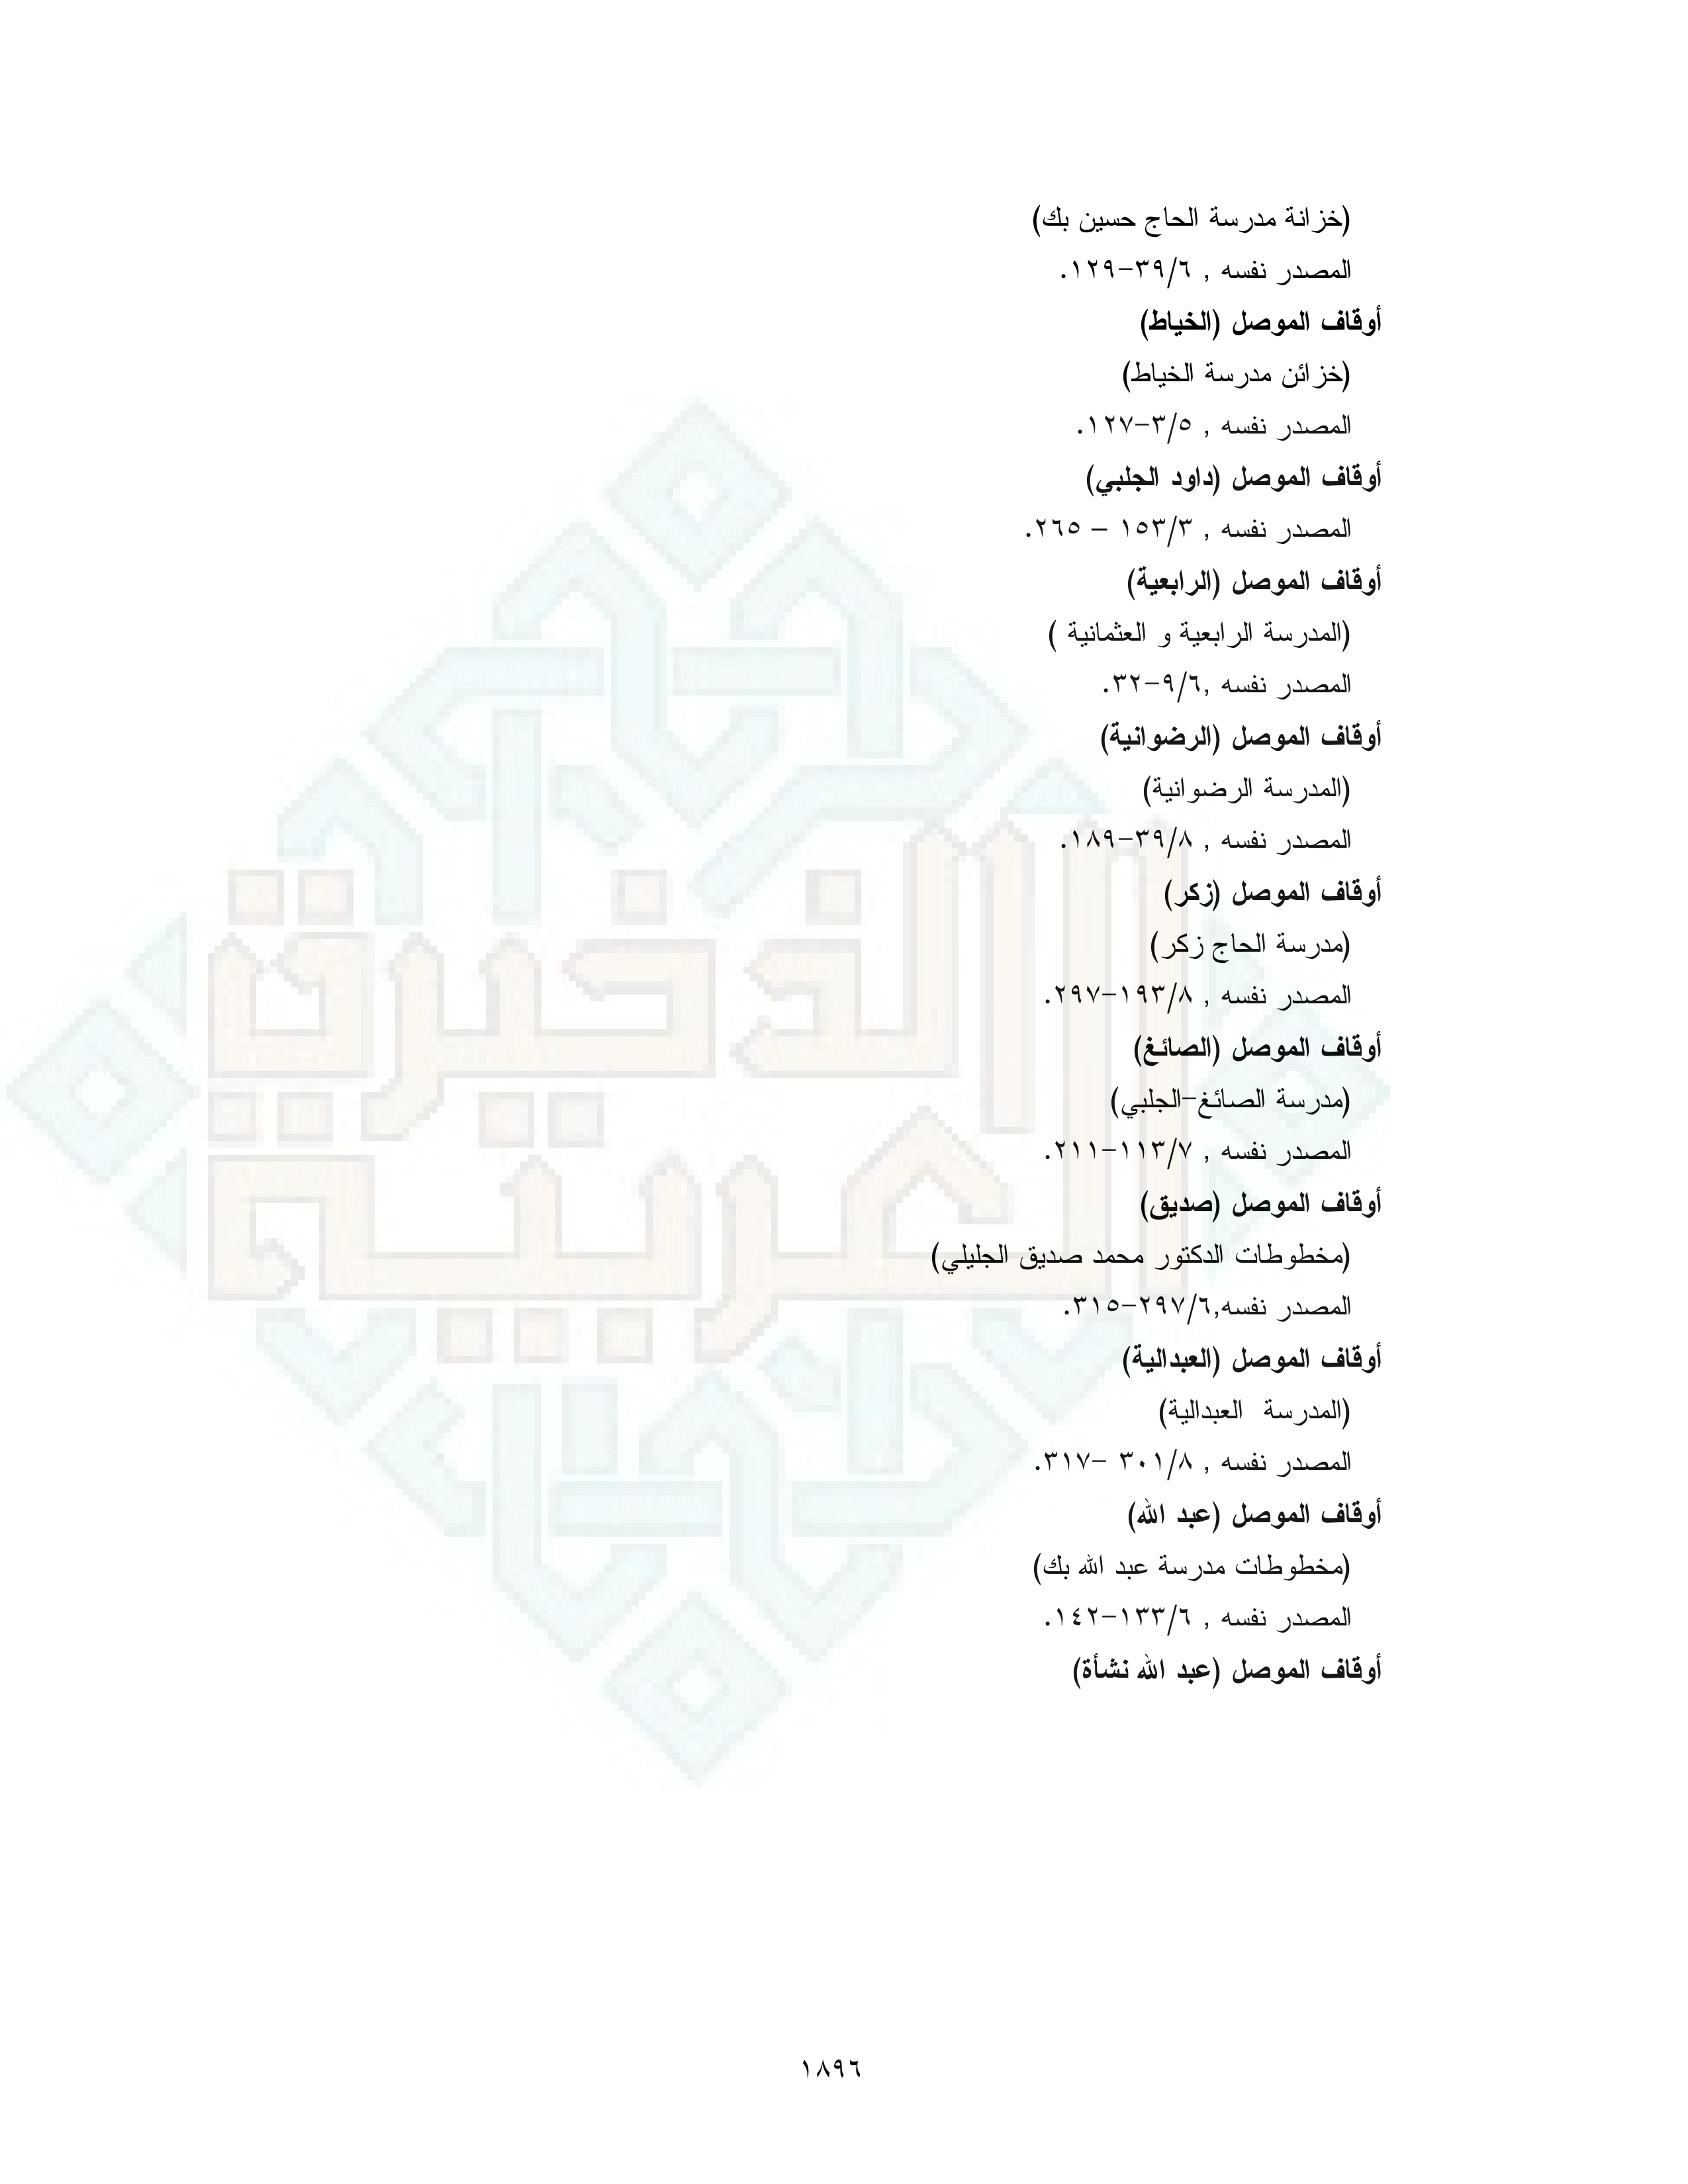 (خزانة مدرسة الحاج حسين بك)
المصدر نفسه , ٣٩/٦-١٢٩.
أوقاف الموصل (الخياط)
(خزائن مدرسة الخياط)
المصدر نفسه , ٣/٥-١٢٧.
أوقاف الموصل (داود الجلبي)
المصدر نفسه , ١٥٣/٣ – ٢٦٥.
أوقاف الموصل (الرابعية)
(المدرسة الرابعية و العثمانية )
المصدر نفسه ,٩/٦-٣٢.
أوقاف الموصل (الرضوانية)
(المدرسة الرضوانية)
المصدر نفسه , ٣٩/٨-١٨٩.
أوقاف الموصل (زكر)
(مدرسة الحاج زكر)
المصدر نفسه , ١٩٣/٨-٢٩٧.
أوقاف الموصل (الصائغ)
(مدرسة الصائغ-الجلبي)
المصدر نفسه , ١١٣/٧-٢١١.
أوقاف الموصل (صديق)
(مخطوطات الدكتور محمد صديق الجليلي)
المصدر نفسه,٢٩٧/٦-٣١٥.
أوقاف الموصل (العبدالية)
(المدرسة العبدالية)
المصدر نفسه , ٣٠١/٨ -٣١٧.
أوقاف الموصل (عبد الله)
(مخطوطات مدرسة عبد الله بك)
المصدر نفسه , ١٣٣/٦-١٤٢.
أوقاف الموصل (عبد الله نشأة)
الذخيرة
العربية
١٨٩٦